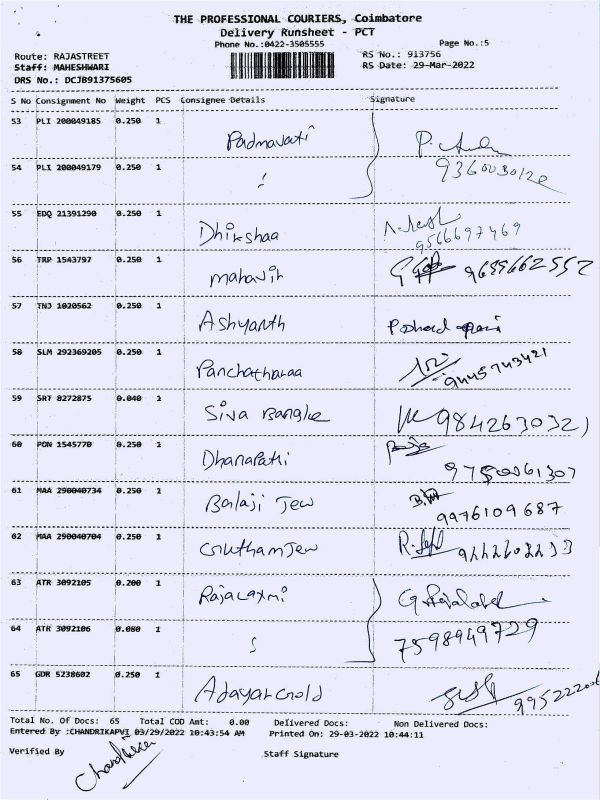 THE PROFESSIONAL COURIERS, Coimbatore
Delivery Runsheet - PCT
Phone No.:0422-3505555 Page No.:5
Route: RAJASTREET RS No.: 913756
Staff: MAHESHWARI RS Date: 29-Mar-2022
DRS No.: DCJB91375605
S No Consignment No Weight PCS Consignee Details Signature
53 PLI 200049185 0.250 1 Padmavati
54 PLI 200049179 0.250 1 9360030120
55 EDQ 21391290 0.250 1 Dhikshaa 9566697469
56 TRP 1543797 0.250 1 mahavir 9659662552
57 TNJ 1020562 0.250 1 Ashyanth
58 SLM 292369205 0.250 1 Panchatharaa 9445743421
59 SRT 8272875 0.040 1 Siva Bangle 9842630321
60 PON 1545770 0.250 1 Dhanapathi 9750061307
61 MAA 290040734 0.250 1 Balaji Jew 9976109687
62 MAA 290040704 0.250 1 GouthamJew
63 ATR 3092105 0.200 1 Rajalaxmi
64 ATR 3092106 0.080 1 7598949729
65 GDR 5238602 0.250 1 Adayar Gold
Total No. Of Docs: 65 Total COD Amt: 0.00 Delivered Docs: Non Delivered Docs:
Entered By :CHANDRIKAPVI 03/29/2022 10:43:54 AM Printed On: 29-03-2022 10:44:11
Verified By Staff Signature